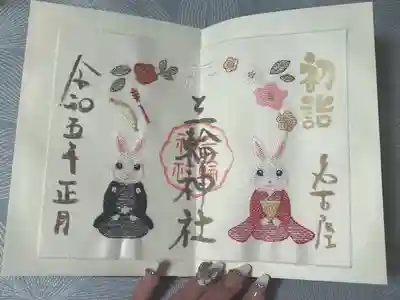 初詣
名古屋
三輪神社
令和五年正月